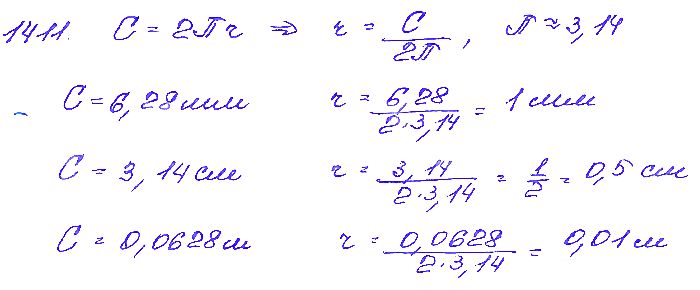 1411. C = 2πr ⇒ r = C/2π, π ≈ 3,14
C = 6,28 мм r = 6,28/2·3,14 = 1 мм
C = 3,14 см r = 3,14/2·3,14 = 1/2 = 0,5 см
C = 0,0628 м r = 0,0628/2·3,14 = 0,01 м